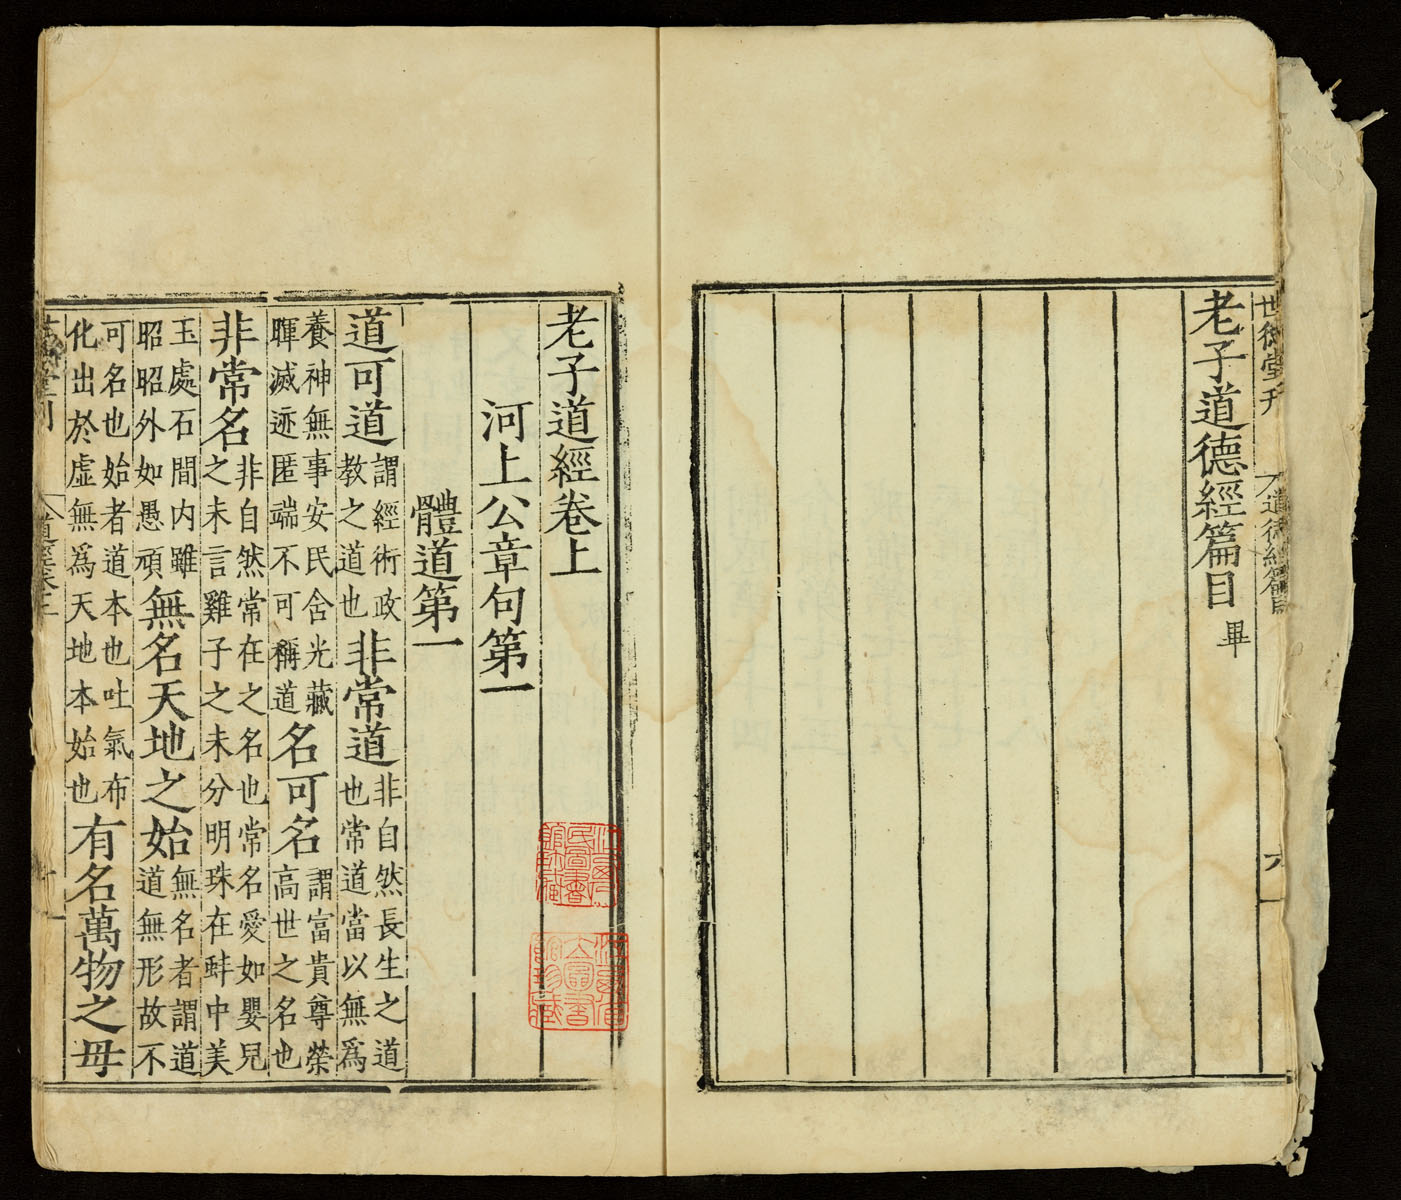 世德堂刊
道德經篇目
六
老子道德經篇目畢
老子道經卷上
河上公章句第一
體道第一
道可道謂經術政教之道也非常道非自然長生之道也常道當以無為
養神無事安民含光藏暉滅迹匿端不可稱道名可名謂富貴尊榮高世之名也
非常名非自然常在之名也常名愛如嬰兒之未言雞子之未分明珠在蚌中美
玉處石間内雖昭昭外如愚頑無名天地之始無名者謂道道無形故不
可名也始者道本也吐氣布化出於虛無爲天地本始也有名萬物之母